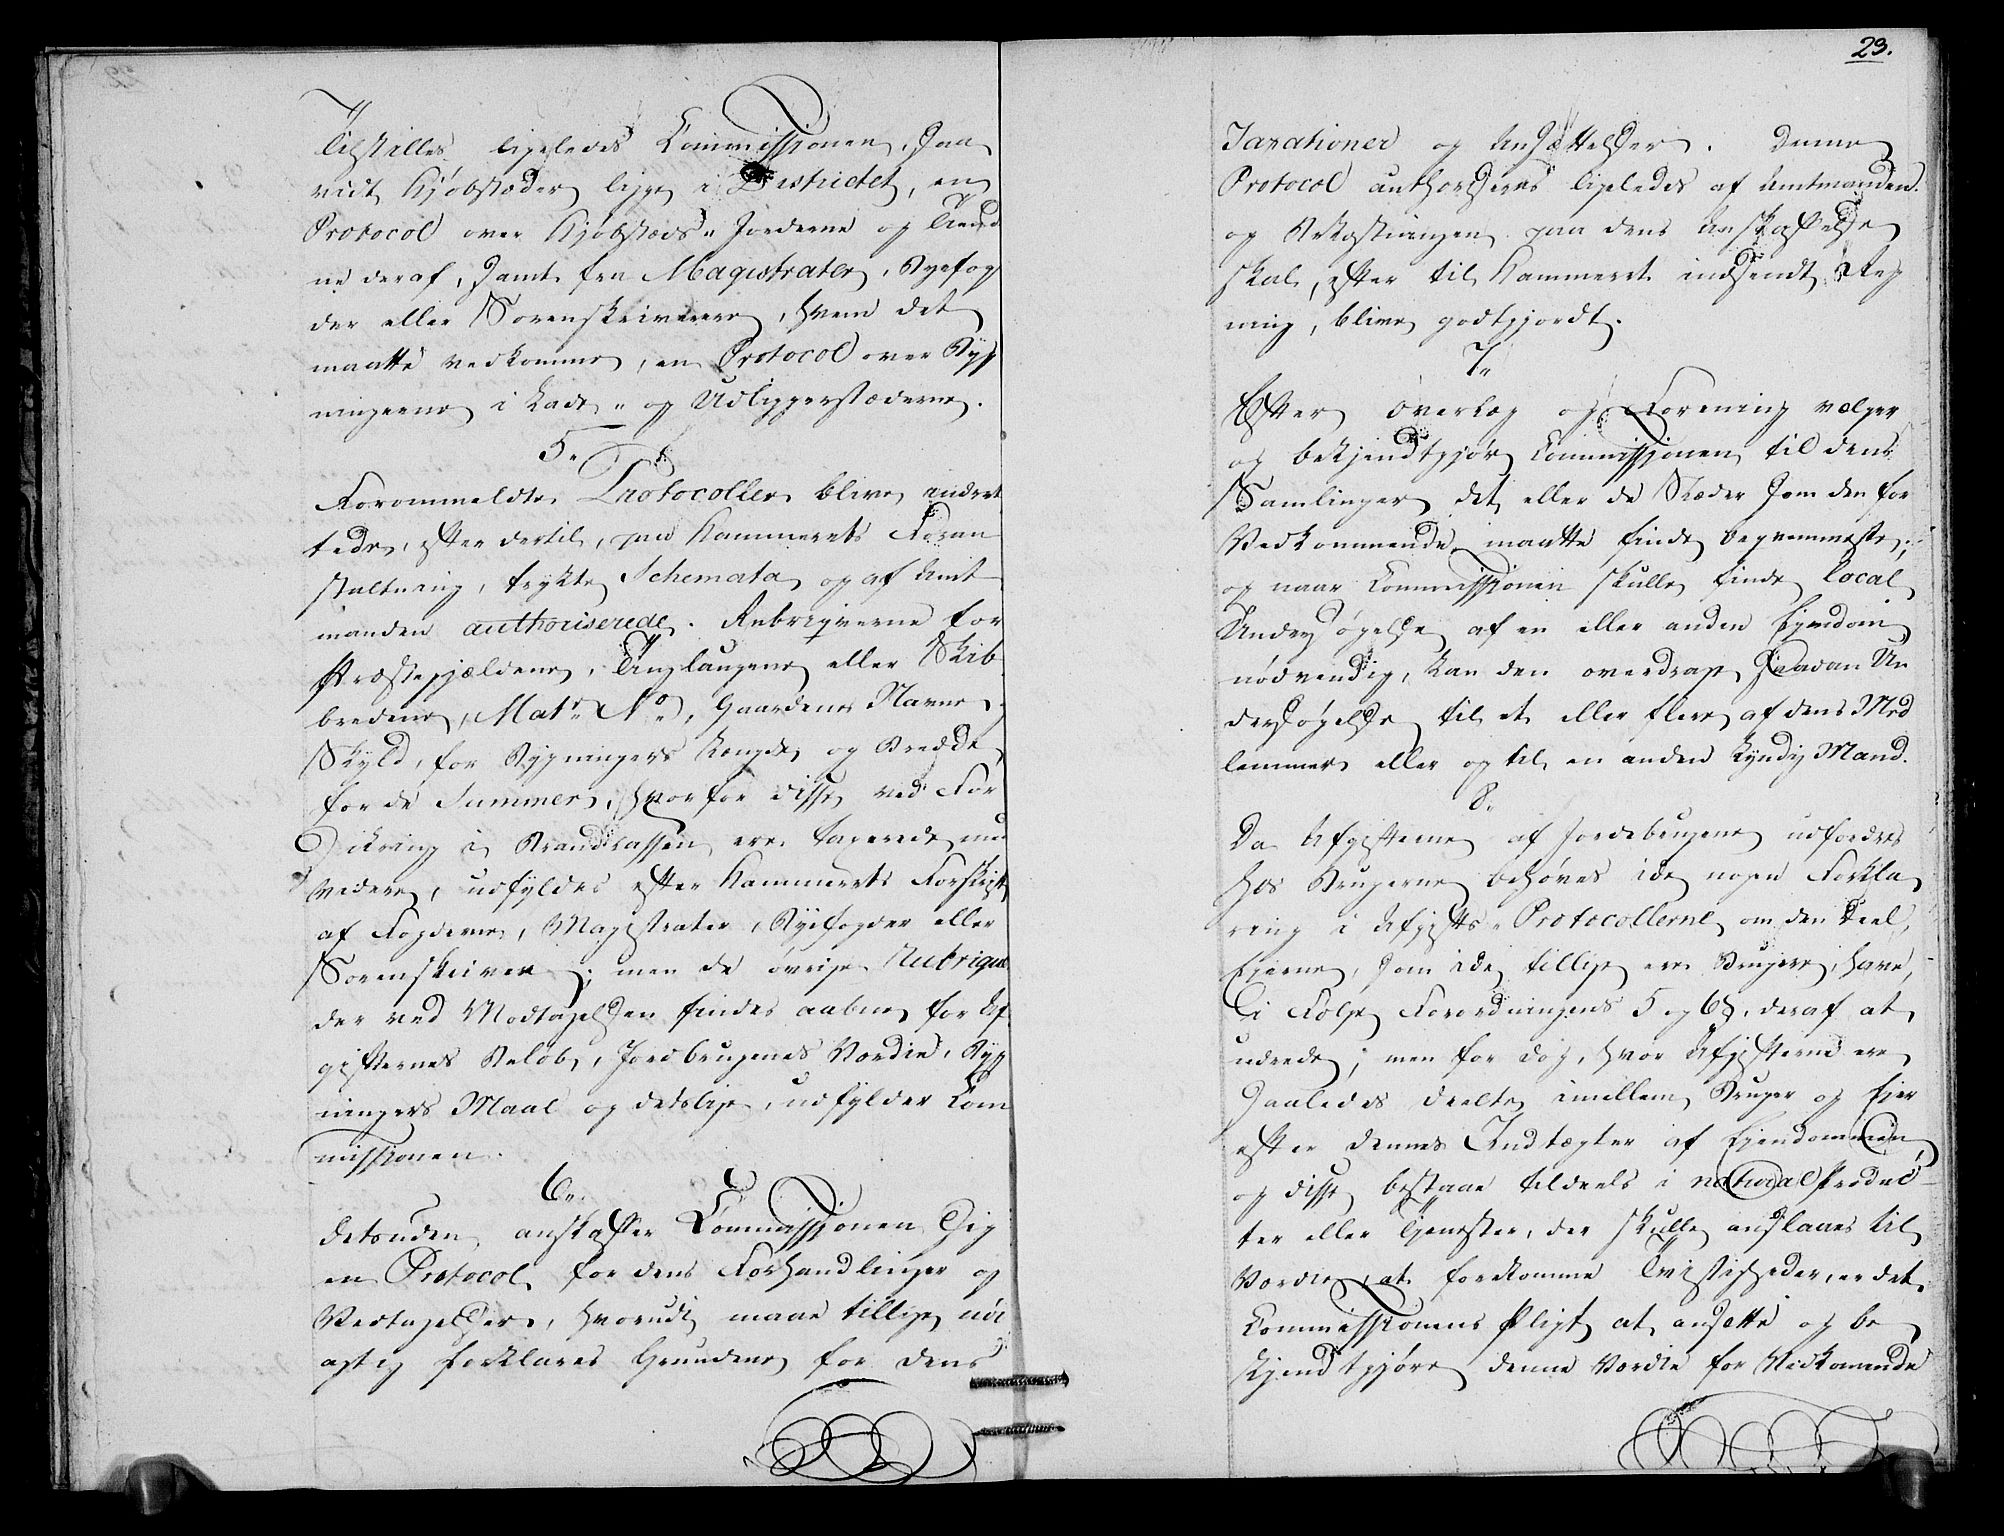 Tilstilles ligeledes Commissionen, saa
vidt Kjöbstæder ligge i Districtet, en
Protocol over Kjöbstæds-Jorderne og Tiend
ne deraf, samt fra Magistrater, Byefog
der eller Sorenskriverne, hvem det
maatte vedkomme, en Protocol over Byg
ningerne i Lade- og Udliggerstæderne.
5.
Forommeldte Protocoller blive indret
tede, efter dertil, paa Kammerets Foran
staltning, trykte Schemata og af Amt
manden authoriserede. Rubriqverne for
Præstegjældene, Tinglaugene eller Skib
rederne, Matr. No, Gaardenes Navne
Skyld, for Bygningers Længde og Bredde,
for de Summer, hvorfor disse ved For
sikring i Brandkassen ere taxerede med
videre, udfyldes efter Kammerets Forskrift
af Fogderne, Magistrater, Byefogder eller
Sorenskriver; men de øvrige Rubriqver
der ved Modtagelsen findes aabne for Af
gifternes Beløb, Jordbrugenes Værdie, Byg
ningers Maal og detslige, udfylder Com
missionen.
6.
Desuden anskaffer Commissionen sig
en Protocol for dens Forhandlinger og
Vedtagelser, hvorudi maae tillige nöi
agtig forklares Grundene for dens
23.
Taxationer og Ansættelser. Denne
Protocol authoriseres ligeledes af Amtmanden.
og Bekostningen paa dens Anskaffelse
skal, efter til Kammeret indsendt Reg
ning, blive godtgjordt.
7.
Efter Overlæg og Forening vælger
og bekjendtgjør Commissionen til dens
Samlinger det eller de Stæder som den for
Vedkommende maatte finde beqvemmeste;
og naar Commissionen skulle finde local
Undersøgelse af en eller anden Eiendom
nödvendig, kan den overdrage saadan Un
dersøgelse til et eller flere af dens Med
lemmer eller og til en anden kyndig Mand.
8.
Da Afgifterne af Jordebrugene udfordres
hos Brugerne behöves ikke nogen Forkla
ring i Afgifts-Protocollerne om den Deel,
Eierne, som ikke tillige ere Brugere, have,
i Følge Forordningens 5 og 6 §, deraf at
udrede; men for dog, hvor Afgifterne ere
saaledes deelte imellem Bruger og Eier
efter dennes Indtægter af Eiendommen,
og disse bestaae tildeels i natural Produc
ter eller Tjenester, der skulle anslaaes til
Værdie, at forekomme Tvistigheder, er det
Commissionens Pligt at ansætte og be
kjendtgjøre denne Værdie for Vedkommende